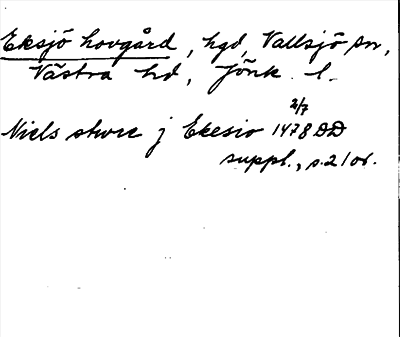 Eksjö hovgård, hgd, Vallsjö sn,
Västra hd, Jönk. l.
2/7
Niels sture j Ekesio 1478 DD
suppl., s. 210r.